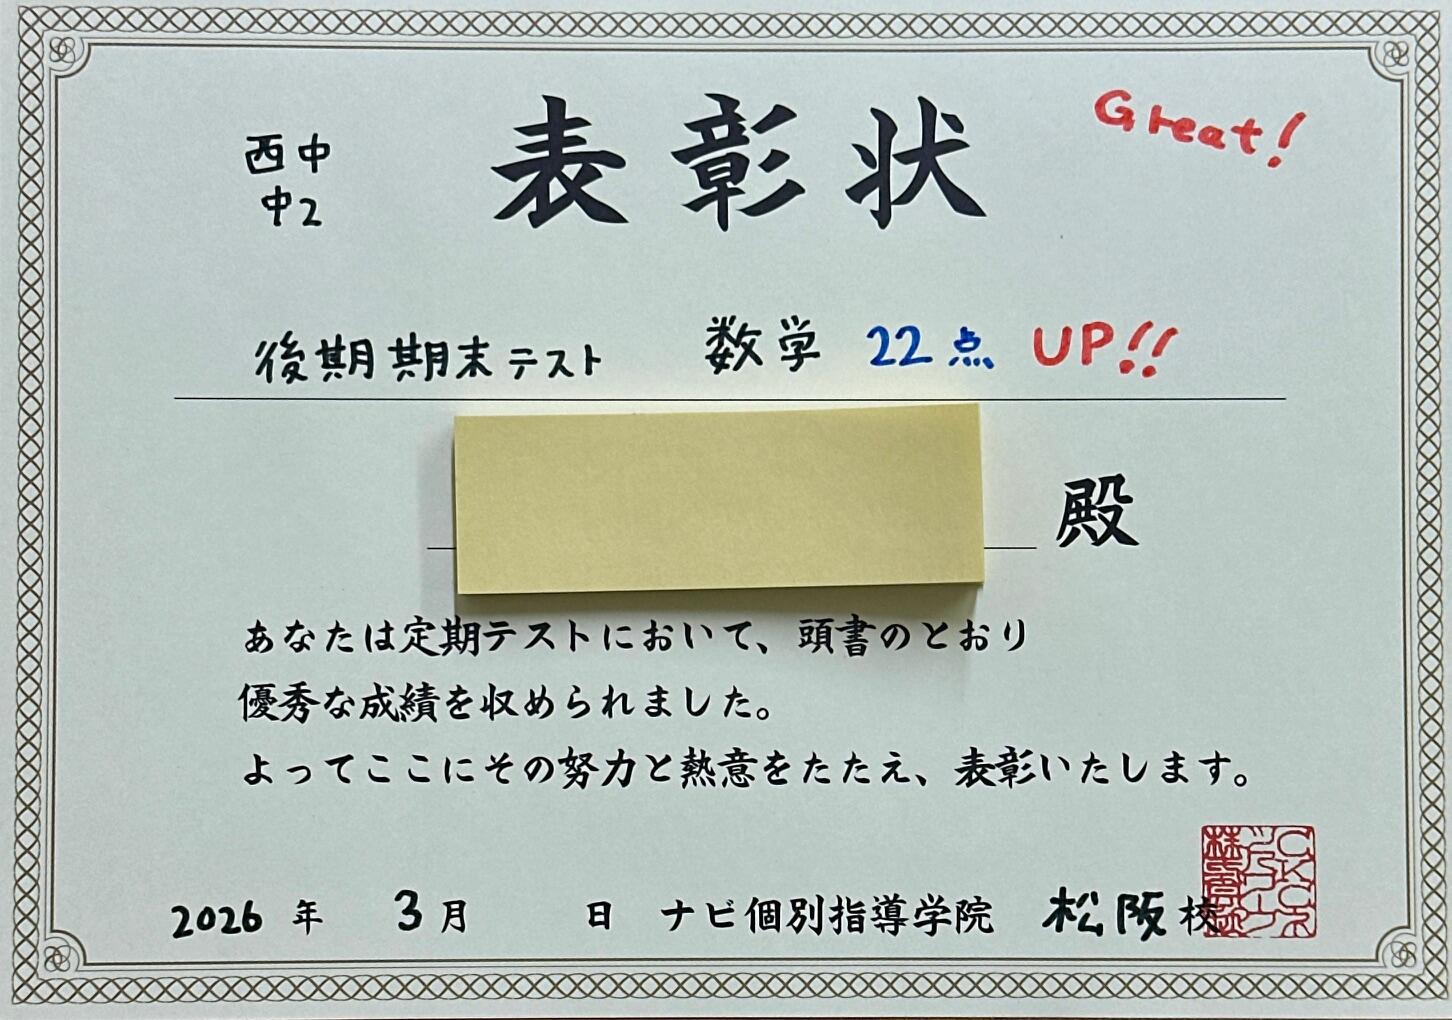 表彰状
Great!
西中
中2
後期期末テスト 数学 22点 UP!!
殿
あなたは定期テストにおいて、頭書のとおり
優秀な成績を収められました。
よってここにその努力と熱意をたたえ、表彰いたします。
2026年 3月 日 ナビ個別指導学院 松阪校